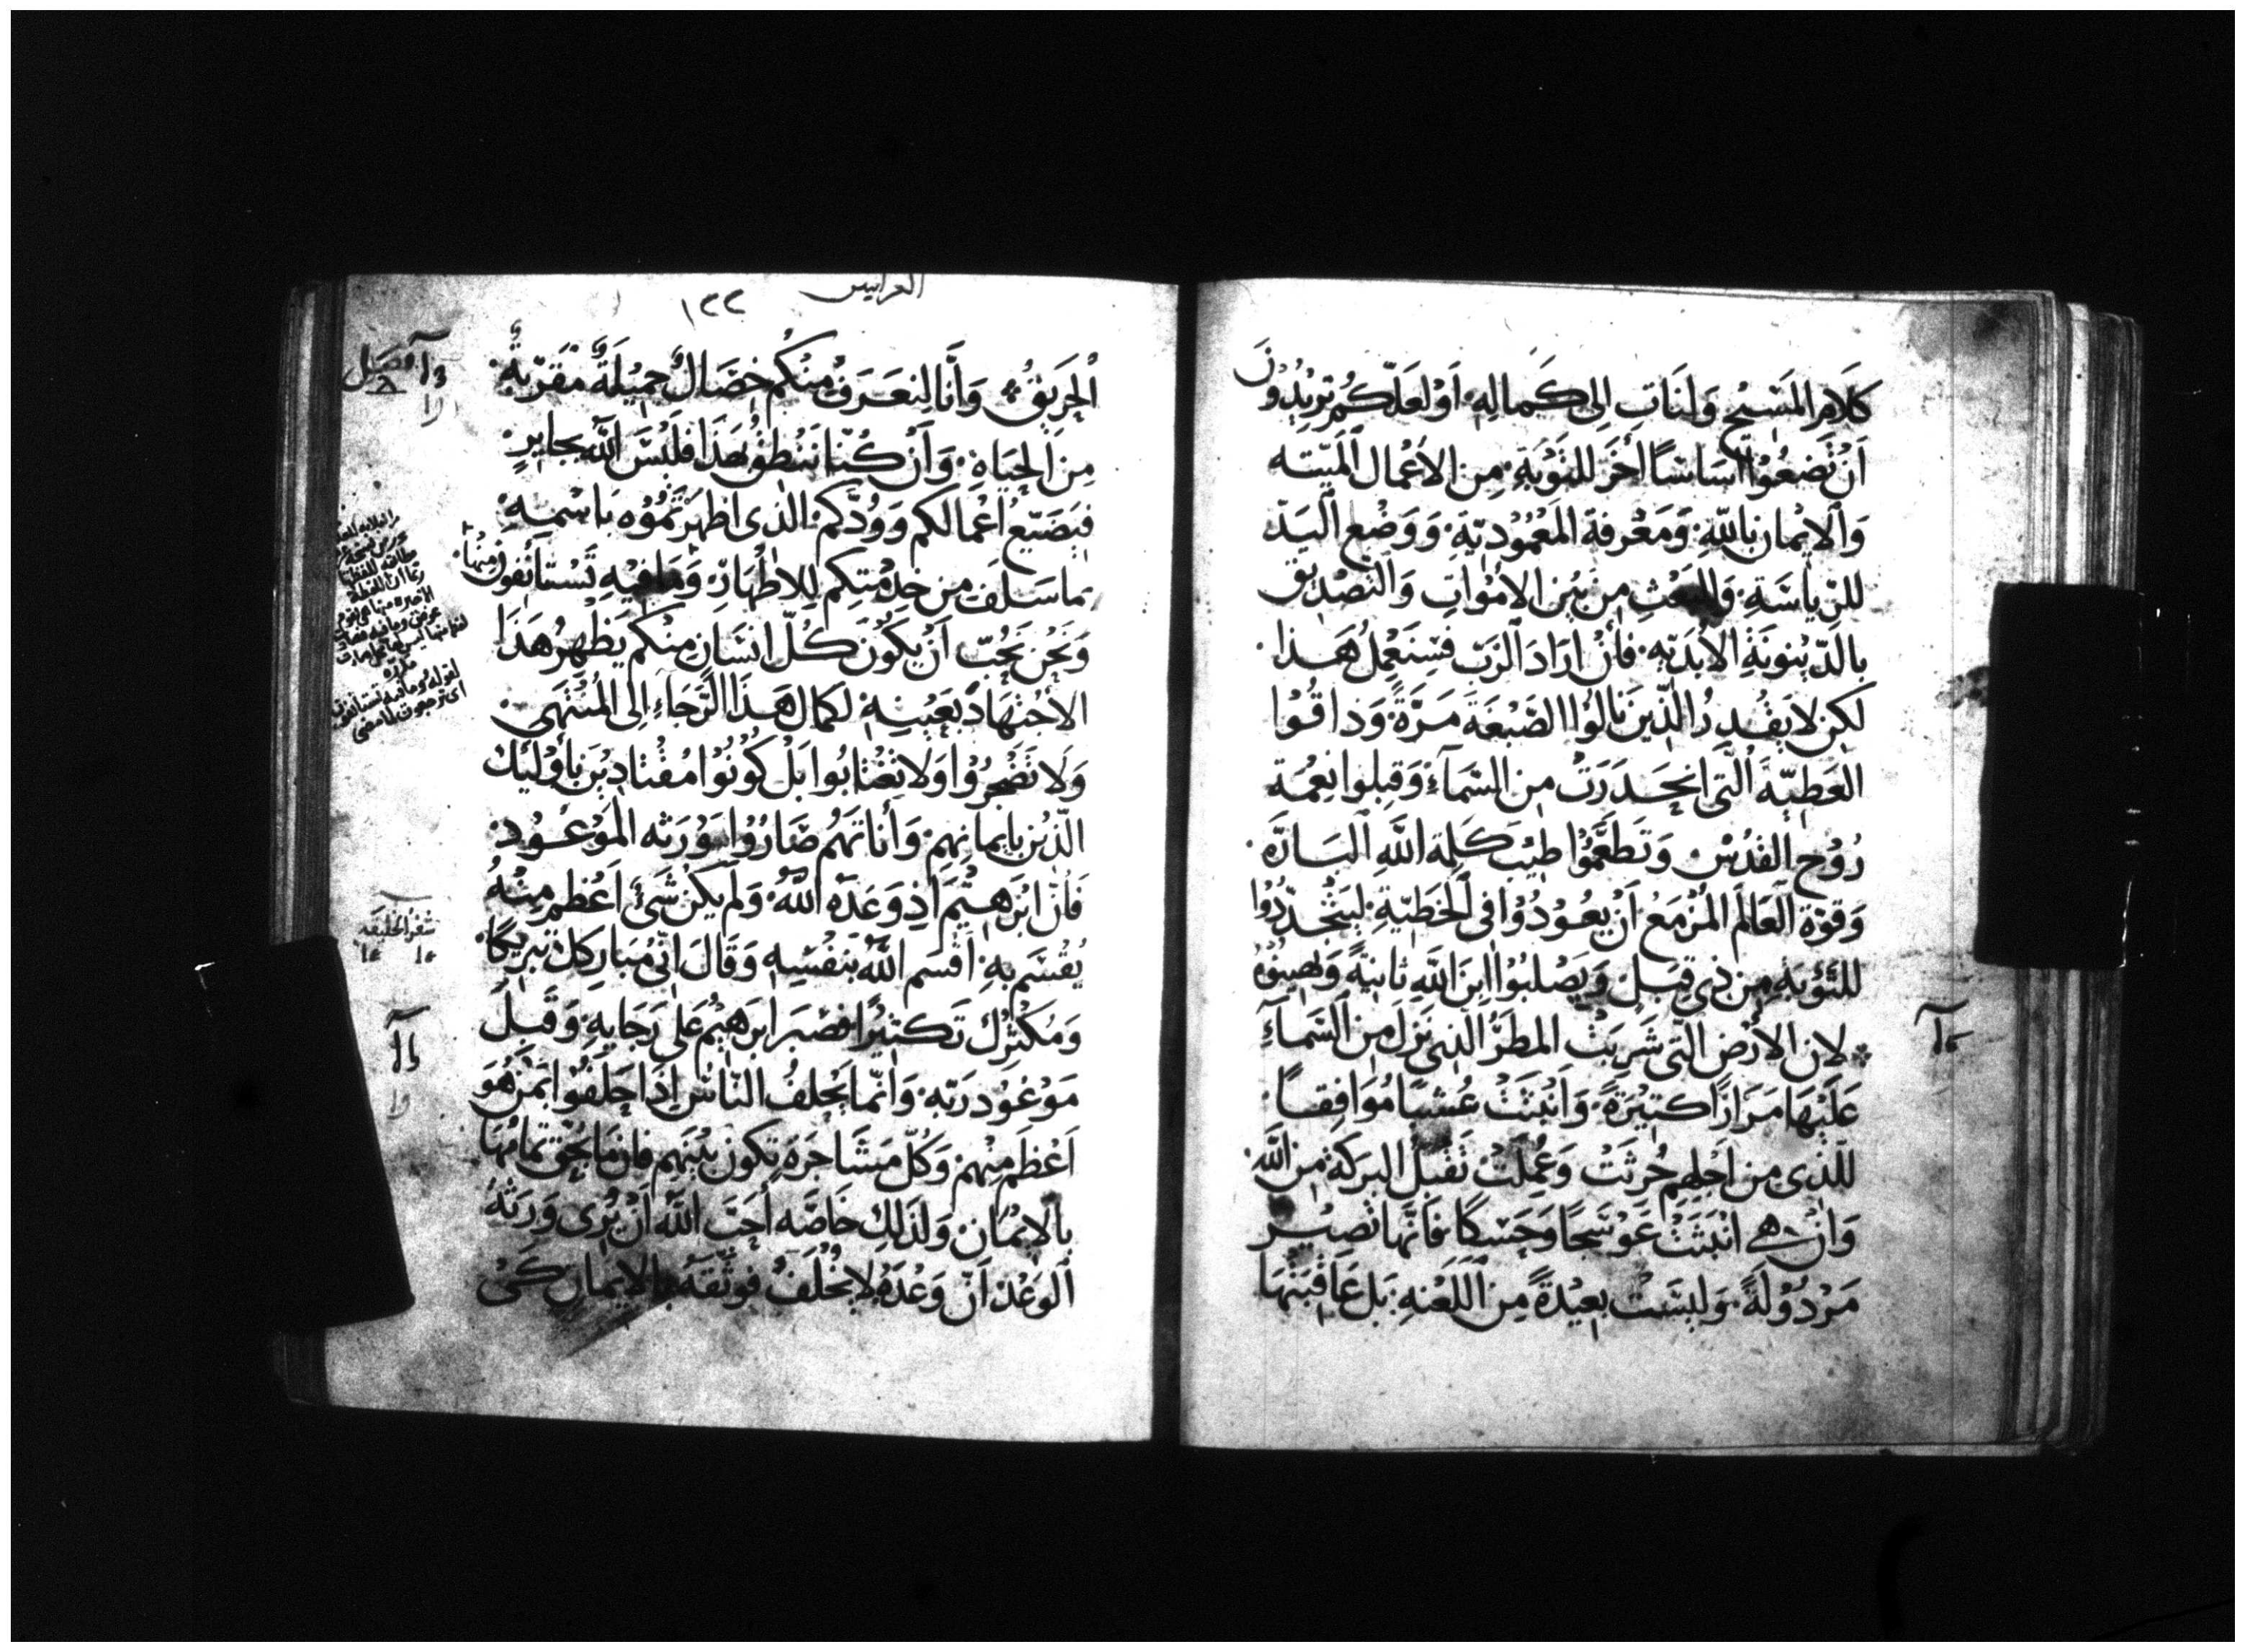 كَلَامِ المَسِيْحِ وَلنَاتِ اِلى كَمالِهِ· اَوْ لَعَلّكُم تُرِيْدُوْنَ
اَنْ تَضعُوْا اَسَاسًا اخَر للتَوْبَةِ· مِن الاَعْمال اَلمَيّتَه
وَالاِيْمان بِاللّهِ· وَمَعْرفة المَعْمُوْدِيّةِ· وَوَضْع اَليَد
للرِيَاسَةِ· وَالبَعْثِ مِن بَيْن الاَمْوَاتِ وَالتَصْدِيْق
بالدّيْنونَةِ الاَبَدِيّهِ· فَاِنْ اَرَادَ الرَبّ فسَنَعْمِلُ هَذا·
لَكِن لا يَقْدِرُ الَّذِيْنَ نَالُوْا الصَبْغَةَ مَرَّةً· وَدَاقُوْا
العَطِيّهَ الَّتِى انحَدَرَتْ مِن السَمآءِ· وَقبِلوا نِعْمَة
رُوْح القُدُسْ وَتَطَعَّمُوْا طِيْبَ كَلِمَة اللّهِ اَلبَارّه·
وَقوّة اَلعَالَم المُزْمَع اَنْ يعُوْدُوْا فى الخَطِيّةِ· ليَتْجَدّدُوْا
للتَوْبَةِ مِن ذِى قِبَل وَيَصْلبُوْا ابنَ اللّهِ ثانِيَةً وَيهينوْهُ
لاِن الاَرْض الَّتى شَرِبَتْ المطرَ الَّذِى نَزل مِن السَمآءِ
عَلَيْهَا مَرَارًا كَتِيْرَةً· وَاَنْبَتَتْ عُشبًا مُوَافِقًا·
للّذِى مِن اَجلِهِم حُرثَتْ وَعُمِلَتْ تَقْبَلُ البَرَكَة مِن اللّهِ·
وَانْ هى انْبَتَتْ عَوْسَجًا وَحَسَكًا فَاَنّها تَصِيْر
مَرْدُوْلَةً· وَليسَتْ بعِيْدَةً مِن اَللَعْنهِ· بَل عَاقبَتهَا
العرانيين
١٢٢
اَلحَرِيْقُ· وَاَنّا لِنعَرَفُ مِنْكُم خِصَالٌ جمِيْلَةً مُقَرّبةٌ·
مِنَ الحَيَاةِ· وَاَنْ كُنّا نَنْطِقُ بهَذَا فَليْسَ اللّه بجايرٍ
فيَضَيّع اَعْمَالكم وَوُدّكم· الّذى اظهَرتمُوْه بَاسْمِهِ
بما سَلَفَ مِن خِدْمَتِكم لِلاطهَارِ· وَمَا فيْهِ تَسْتَانِفونْ مِنهَا·
وَنَحْنِ نحِبّ اَنْ يكُوْنَ كُلّ انسَانٍ مِنْكم يَظهِرُ هَذَا
الاجتهَاد بعَيْنِهِ· لكَمال هَذَا الرَّجَاءِ اِلى المُنْتَهَى
وَلَا تَضْجرُوْا وَلا تغْتابُوا بَلْ كُوْنُوْا مُقْتادِيْنَ بِأُوْليِك
الّذِيْن بايمانِهِمْ· وَأناتهمْ صَارُوْا وَرَثه المَوْعُوْد·
فَانّ ابرَهِيْم اَذِ وَعَدَهُ اللّهُ· وَلم يكُنْ شئ اَعْظم مِنْهُ
يُقْسَم بهِ· اَقْسَم اللّه بنَفْسِهِ وَقَالَ اِنّى مُبَارِكك تبريْكًا·
وَمُكْثِرك تَكتيْرًا فصَبَر ابرَهيْم عَلى رَجَايهِ وَقَبِلَ
مَوْعُوْد رَبّه· وَانّما يَحْلفُ النّاسُ اِذا حَلفُوْا بمَنْ هُوَ
اَعْظَم مِنْهمْ· وَكلّ مَشَاجَرَة تكون بيْنهم فان مَا يحقق تمامُهَا
بالاِيْمانِ· وَلذَلِكِ خَاصّه اَحَبّ اللّه اَنْ يُرى وَرَثة
اَلوَعْدْ اَنّ وَعْدَهُ لا يخْلَفُ فوثقهُ بالايمان كَىْ
فصل
سفر الخليقه